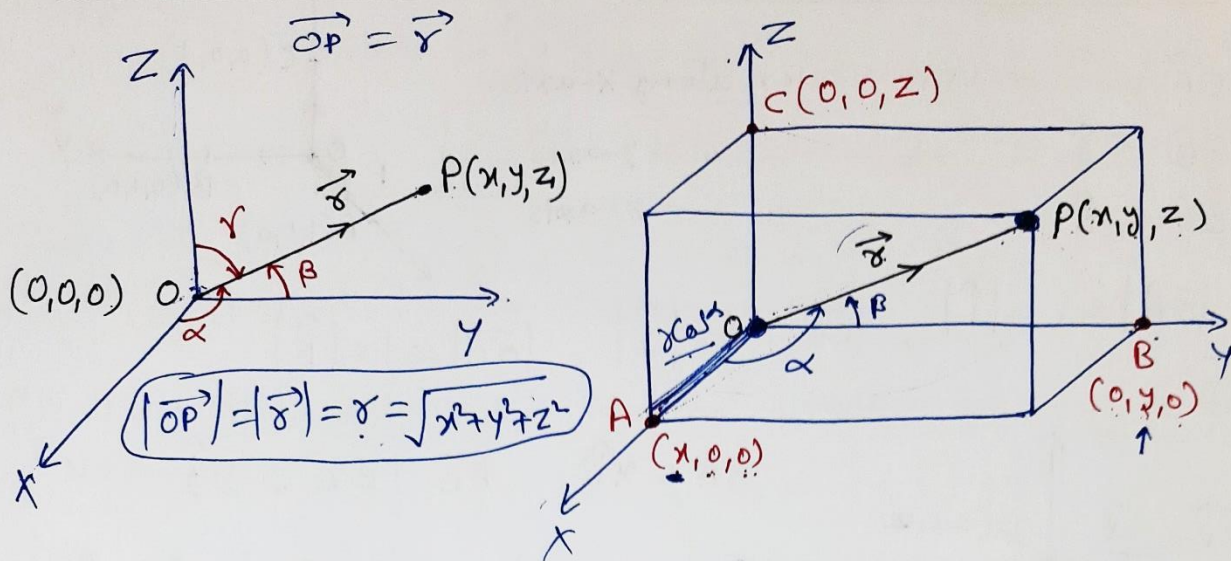 $\overrightarrow{OP} = \overrightarrow{r}$
Z
$\overrightarrow{r}$
P(x,y,z)
γ
β
(0,0,0) O
α
Y
$|\overrightarrow{OP}| = |\overrightarrow{r}| = r = \sqrt{x^2+y^2+z^2}$
X
Z
C(0,0,z)
P(x,y,z)
$\overrightarrow{r}$
r cos α
O
β
α
Y
B
(0,y,0)
A
(x,0,0)
X